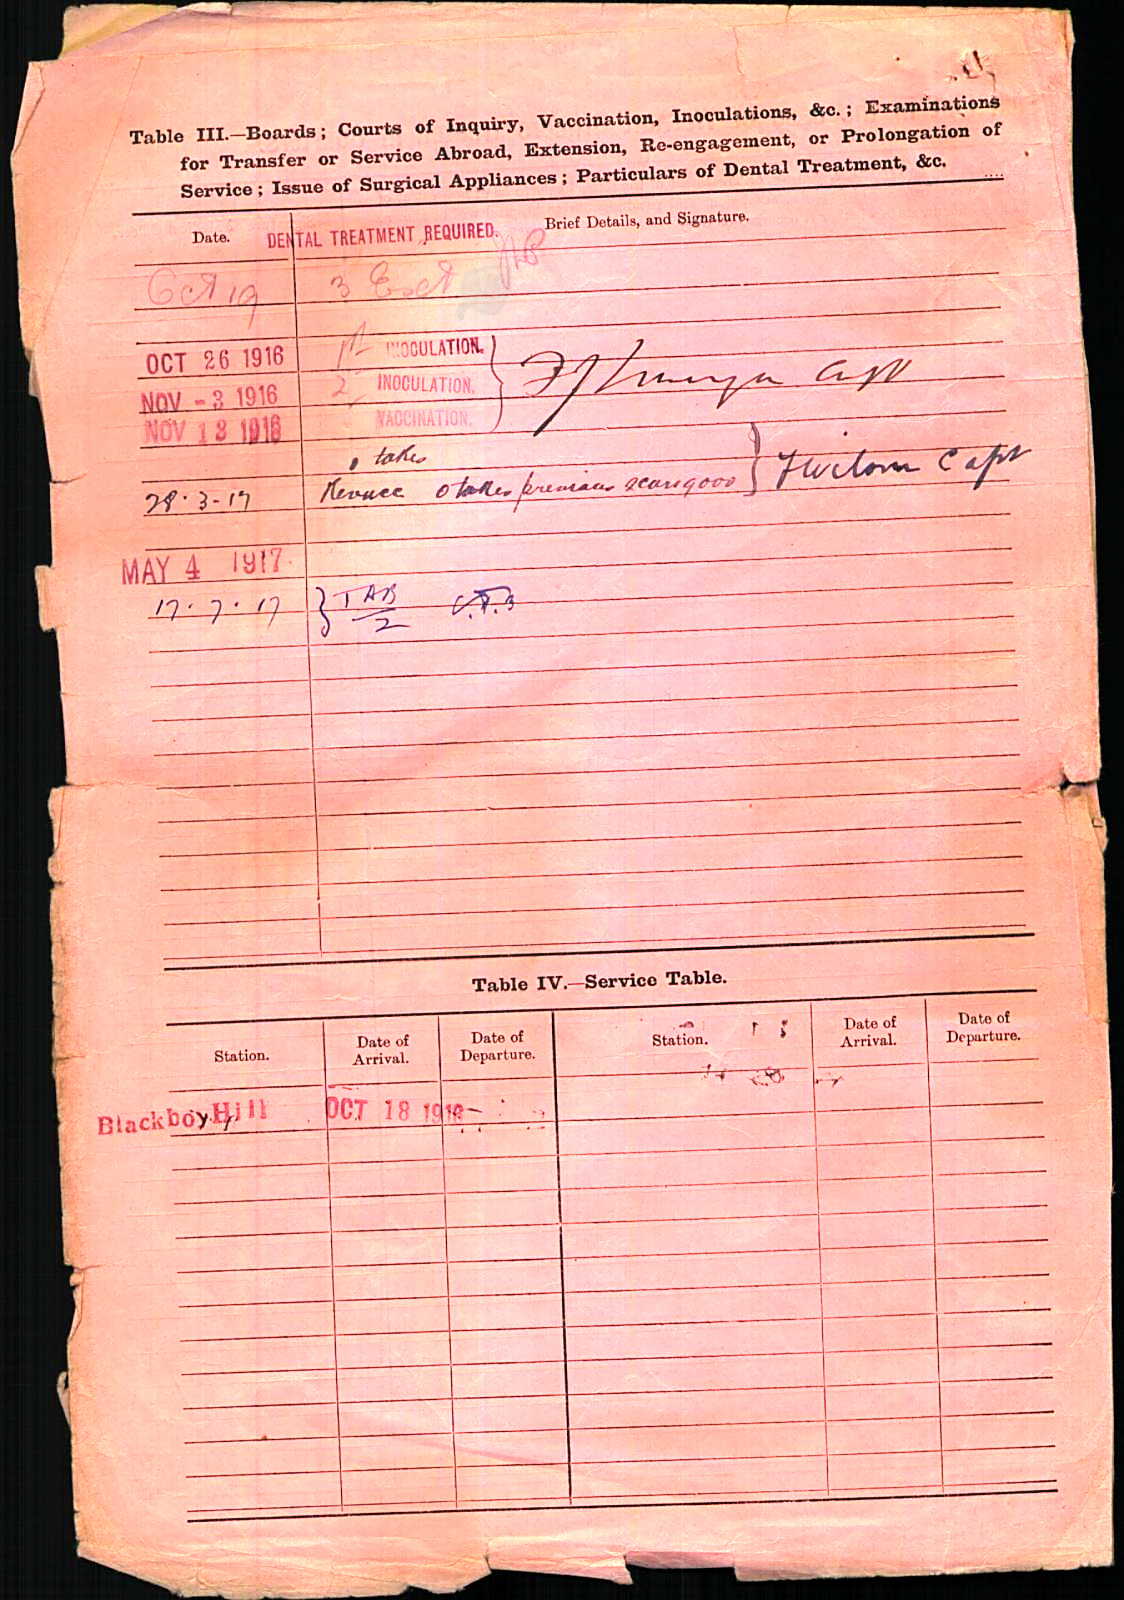 Table III.—Boards; Courts of Inquiry, Vaccination, Inoculations, &c.; Examinations
for Transfer or Service Abroad, Extension, Re-engagement, or Prolongation of
Service; Issue of Surgical Appliances; Particulars of Dental Treatment, &c.
Date. Brief Details, and Signature.
DENTAL TREATMENT REQUIRED.
Oct 19 3 Ext
OCT 26 1916 1st INOCULATION.
NOV -3 1916 2 INOCULATION. Capt
NOV 13 1916 VACCINATION.
0 takes
28.3-17 Revacc 0 takes previous scars good Capt
MAY 4 1917
17.7.17 TAB
2
Table IV.—Service Table.
Station. Date of Arrival. Date of Departure. Station. Date of Arrival. Date of Departure.
Blackboy Hill OCT 18 1916